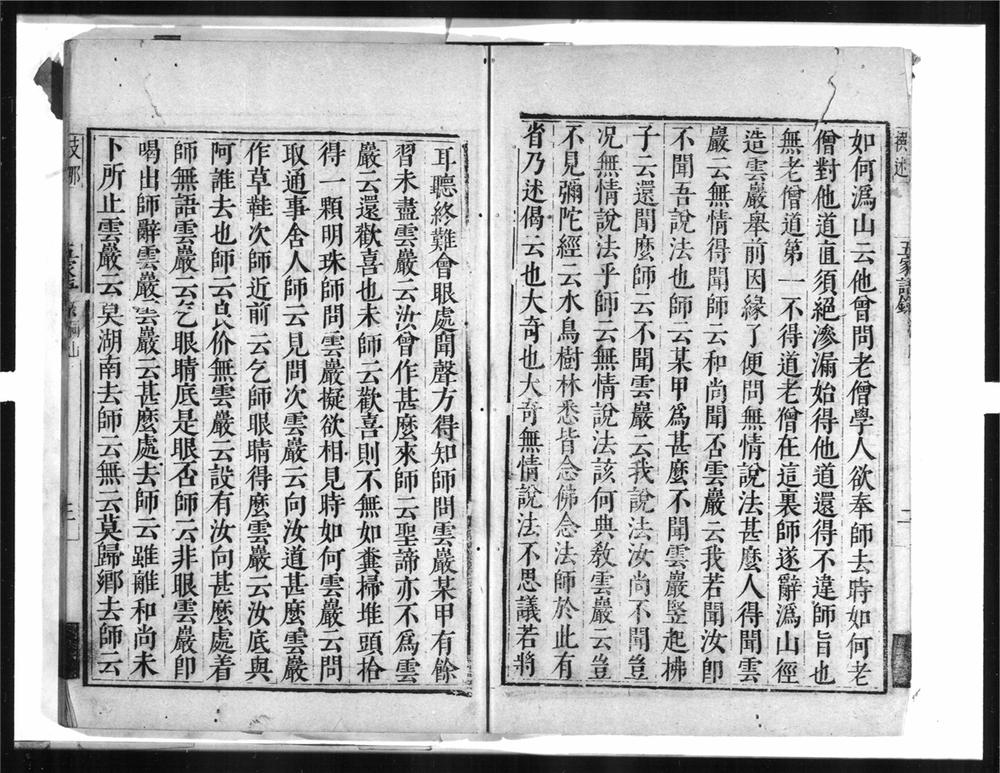 如何溈山云他曾問老僧學人欲奉師去時如何老
僧對他道直須絕滲漏始得他道還得不違師旨也
無老僧道第一不得道老僧在這裏師遂辭溈山徑
造雲巖舉前因緣了便問無情說法甚麼人得聞雲
巖云無情得聞師云和尚聞否雲巖云我若聞汝卽
不聞吾說法也師云某甲爲甚麼不聞雲巖竪起拂
子云還聞麼師云不聞雲巖云我說法汝尚不聞豈
况無情說法乎師云無情說法該何典敎雲巖云豈
不見彌陀經云水鳥樹林悉皆念佛念法師於此有
省乃述偈云也大奇也大奇無情說法不思議若將
五家語錄
二
耳聽終難會眼處聞聲方得知師問雲巖某甲有餘
習未盡雲巖云汝曾作甚麼來師云聖諦亦不爲雲
巖云還歡喜也未師云歡喜則不無如糞掃堆頭拾
得一顆明珠師問雲巖擬欲相見時如何雲巖云問
取通事舍人師云見問次雲巖云向汝道甚麼雲巖
作草鞋次師近前云乞師眼睛得麼雲巖云汝底與
阿誰去也師云良价無雲巖云設有汝向甚麼處着
師無語雲巖云乞眼睛底是眼否師云非眼雲巖卽
喝出師辭雲巖雲巖云甚麼處去師云雖離和尚未
卜所止雲巖云莫湖南去師云無云莫歸鄉去師云